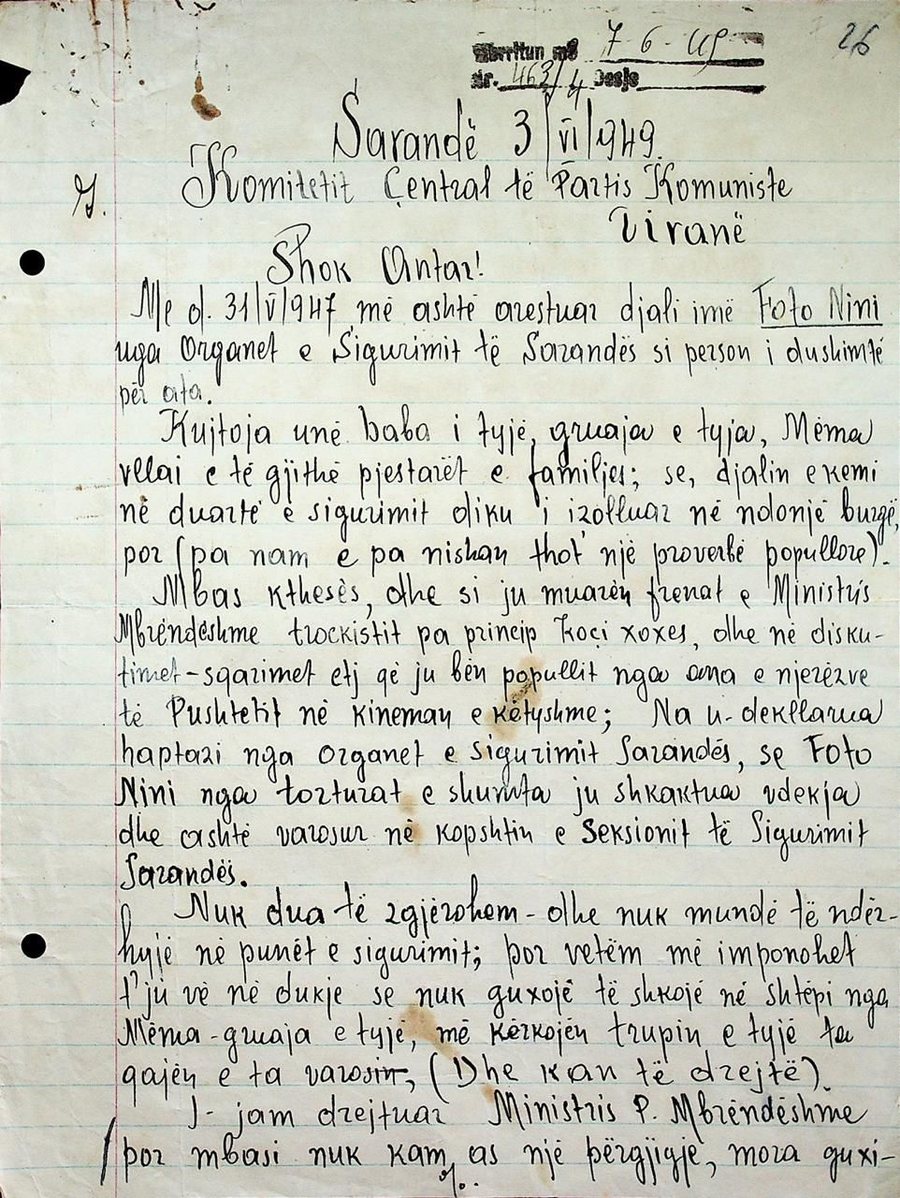 26
Mberritun më 7-6-49
Nr. 463/4 Dosje
Sarandë 3/VI/1949.
Komitetit Çentral të Partis Komuniste
Tiranë
Shok Antar!
Me d. 31/V/1947 më ashtë arestuar djali imë Foto Nini
nga Organet e Sigurimit të Sarandës si person i dushimtë
për ata.
Kujtoja unë baba i tyjë, gruaja e tyja, Mëma
vllai e të gjithë pjestarët e familjes; se, djalin e kemi
në duartë e sigurimit diku i izolluar në ndonjë burgë,
por (pa nam e pa nishan thot një proverbë popullore).
Mbas kthesës, dhe si ju muarën frenat e Ministris
Mbrëndëshme trockistit pa princip Koçi Xoxes, dhe në disku-
timet-sqarimet etj që ju bën popullit nga ana e njerëzve
të Pushtetit në kineman e këtyshme; Na u-dekllarua
haptazi nga organet e Sigurimit Sarandës, se Foto
Nini nga torturat e shumta ju shkaktua vdekja
dhe ashtë varosur në kopshtin e Seksionit të Sigurimit
Sarandës.
Nuk dua të zgjërohem - dhe nuk mundë të ndër-
hyjë në punët e sigurimit; por vetëm më imponohet
t'ju vë në dukje se nuk guxojë të shkojë në shtëpi nga
Mëma-gruaja e tyjë, më kërkojën trupin e tyjë ta
qajën e ta varosin, (Dhe kan të drejtë).
I- jam drejtuar Ministris P. Mbrëndëshme
por mbasi nuk kam as një përgjigjë, mora guxi-